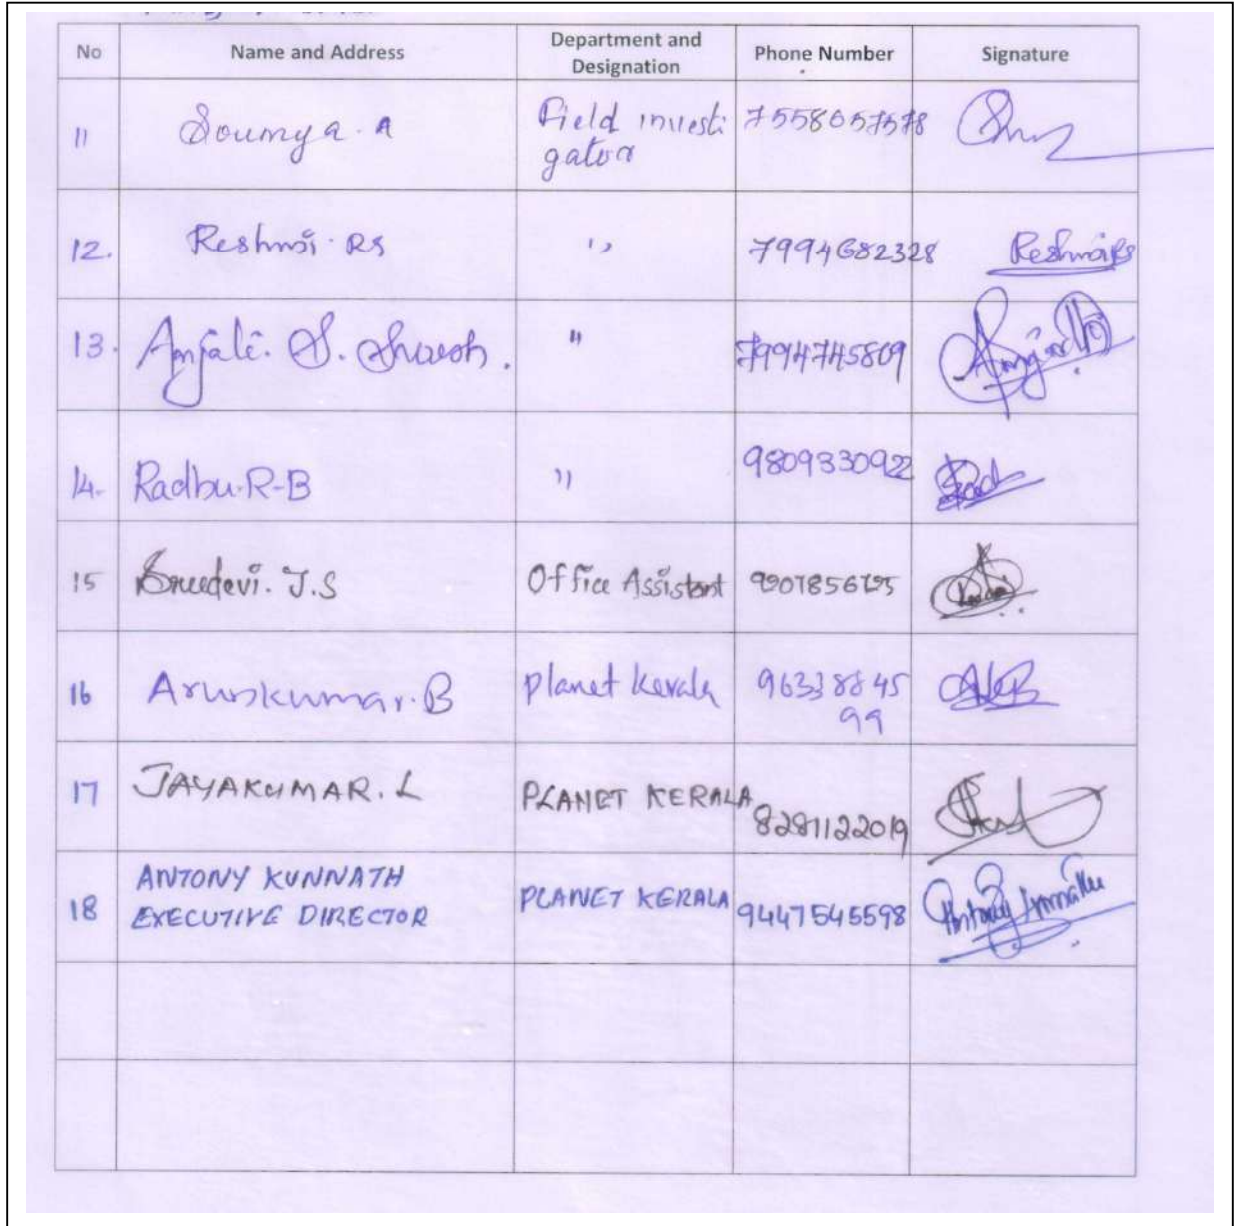 No Name and Address Department and Designation Phone Number Signature
11 Soumya. A Field investigator 7558057578
12. Reshmi. RS ,, 7994682328 Reshmi RS
13. Anjali. S. Suresh. " 7994745809
14. Radhu.R-B ,, 9809330922
15 Sreedevi. J.S Office Assistant
16 Arunkumar. B Planet Kerala 9633884599
17 JAYAKUMAR. L PLANET KERALA 8281122019
18 ANTONY KUNNATH PLANET KERALA 9447545598 Antony Kunnath
EXECUTIVE DIRECTOR